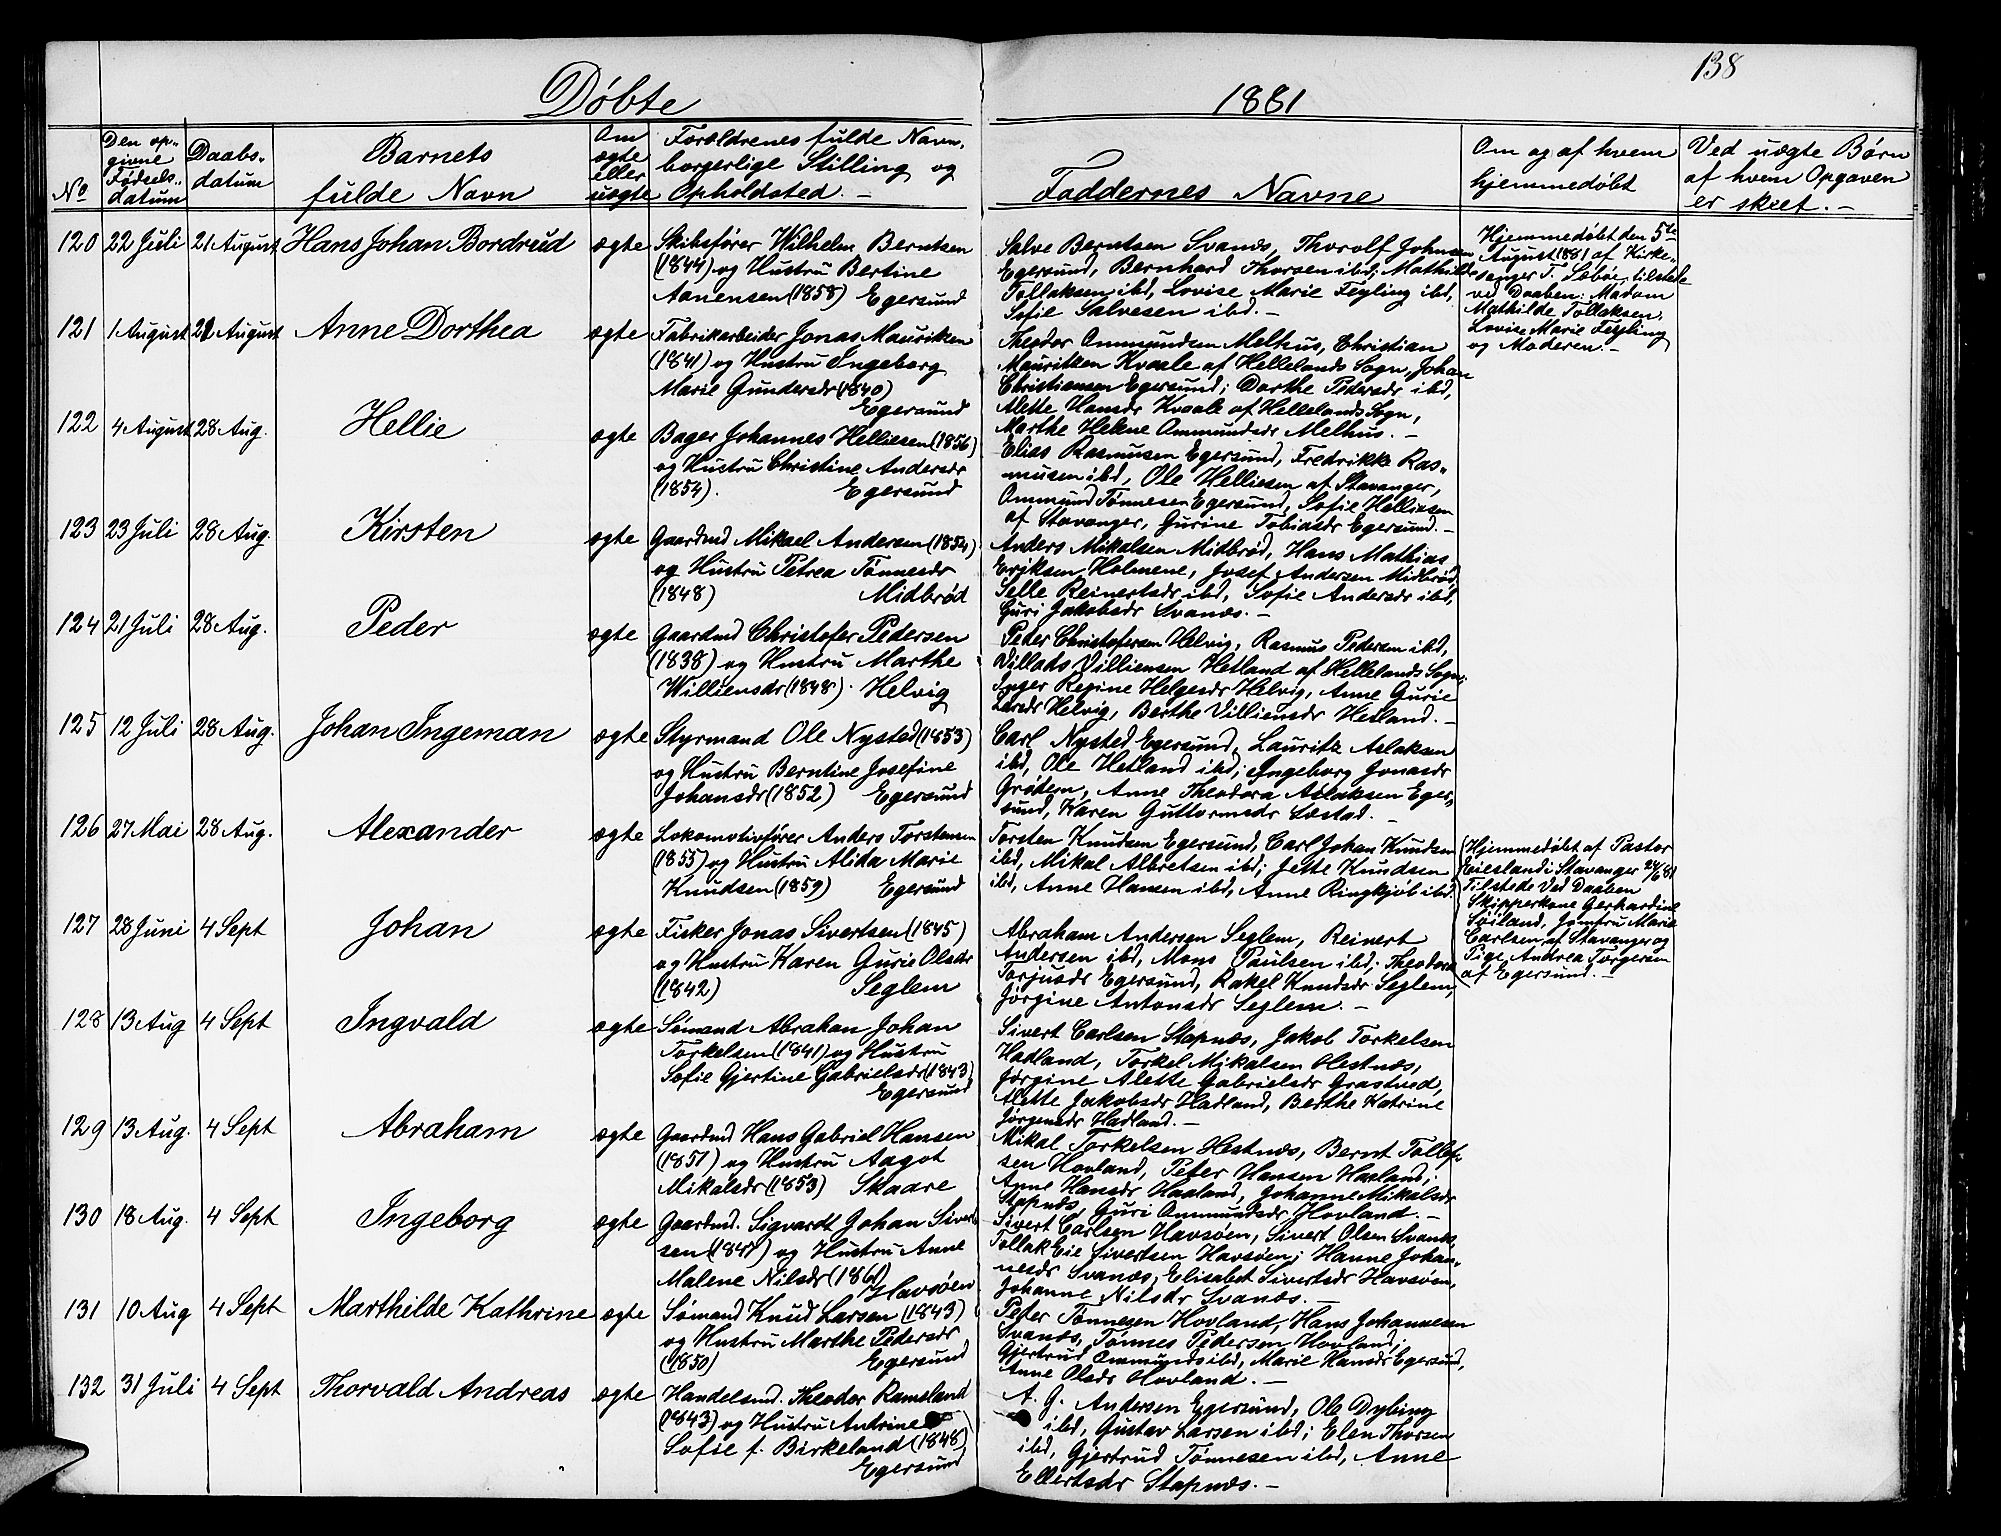 138
Døbte 1881
No
Den op-
givne
Fødsels-
datum
Daabs-
datum
Barnets
fulde Navn
Om
ægte
eller
uægte
Forældrenes fulde Navn,
borgerlige Stilling og
Opholdsted. –
Faddernes Navne
Om og af hvem
hjemmedøbt
Ved uægte Børn
af hvem Opgaven
er skeet. –
120 22 Juli 21 August Hans Johan Bordrud ægte
Skibsfører Wilhelm Berntsen
(1844) og Hustru Bertine
Aanensen (1858) Egersund
Salve Berntsen Svanæs, Thorolf Johnsen
Egersund, Bernhard Thorsen ibd; Mathilde
Tollaksen ibd, Lovise Marie Feyling ibd,
Sofie Salvesen ibd. –
Hjemmedøbt den 5te
August 1881 af Kirke-
sanger T. Sæbøe, tilstede
ved Daaben: Madam
Mathilde Tollaksen,
Lovise Marie Feyling
og Moderen. –
121 1 August 21 August Anne Dorthea ægte
Fabrikarbeider Jonas Mauritsen
(1841) og Hustru Ingeborg
Marie Gundersdr (1840)
Egersund
Theodor Ommundsen Melhus, Christian
Mauritzen Kvaale af Hellelands Sogn, Johan
Christiansen Egersund; Dorthe Pedersdr ibd,
Alette Hansdr Kvaale af Hellelands Sogn,
Marthe Helene Ommundsdr Melhus. –
122 4 August 28 Aug. Hellie ægte
Bager Johannes Helliesen (1856)
og Hustru Christine Andersdr
(1854). Egersund
Elias Rasmusen Egersund, Fredrikke Ras-
musen ibd, Ole Helliesen af Stavanger,
Ommund Tønnesen Egersund, Sofie Helliesen
af Stavanger, Gurine Tobiasdr Egersund. –
123 23 Juli 28 Aug. Kirsten ægte
Gaardmd Mikael Andersen (1854)
og Hustru Petrea Tønnesdr
(1848) Midbrød
Anders Mikalsen Midbrød, Hans Mathias
Eriksen Holmene, Josef Andersen Midbrød,
Selle Reinertsdr ibd, Sofie Andersdr ibd,
Guri Jakobsdr Svanæs. –
124 21 Juli 28 Aug. Peder ægte
Gaardmd Christofer Pedersen
(1838) og Hustru Marthe
Williensdr (1848). Helvig
Peder Christofersen Helvig, Rasmus Pedersen ibd,
Villads Villiensen Hetland af Hellelands Sogn;
Inger Regine Helgesdr Helvig, Anne Gurie
Larsdr Helvig, Berthe Villiensdr Hetland. –
125 12 Juli 28 Aug. Johan Ingeman ægte
Styrmand Ole Nysted (1853)
og Hustru Berntine Josefine
Johansdr (1852) Egersund
Carl Nysted Egersund, Lauritz Aslaksen
ibd, Ole Hetland ibd; Ingeborg Jonasdr
Grødem, Anne Theodora Aslaksen Eger-
sund, Karen Guttormsdr Læstad. –
126 27 Mai 28 Aug. Alexander ægte
Lokomotivfører Anders Torstensen
(1855) og Hustru Alida Marie
Knudsen (1859) Egersund
Torsten Knudsen Egersund, Carl Johan Knudsen
ibd, Mikal Albretsen ibd; Jette Knudsen
ibd, Anne Hansen ibd, Anne Ringkjøb ibd.
Hjemmedøbt af Pastor
Eieslandi Stavanger 24/6 81
Tilstede Ved Daaben
Skipperkone Gerhardine
Søiland, Jomfru Marie
Carlsen af Stavanger og
Pige Andrea Torgersen
af Egersund. –
127 28 Juni 4 Sept Johan ægte
Fisker Jonas Sivertsen (1845)
og Hustru Karen Gurie Olsdr
(1842) Seglem
Abraham Andersen Seglem, Reinert
Andersen ibd, Mons Paulsen ibd; Theodora
Torjusdr Egersund, Rakel Knudsdr Seglem,
Jørgine Antonsdr Seglem. –
128 13 Aug 4 Sept Ingvald ægte
Sømand Abrahan Johan
Torkelsen (1841) og Hustru
Sofie Gjertine Gabrielsdr (1843)
Egersund
Sivert Carlsen Stapnæs, Jakob Torkelsen
Hadland, Torkel Mikalsen Hestnæs,
Jørgine Alette Gabrielsdr Grastved,
Alette Jakobsdr Hadland, Berthe Katrine
Jørgensdr Hadland. –
129 13 Aug. 4 Sept Abraham ægte
Gaardmd Hans Gabriel Hansen
(1851) og Hustru Aagot
Mikalsdr (1853) Skaare
Mikal Torkelsen Hestnæs, Bernt Tollef-
sen Hovland, Peter Hansen Haaland;
Anne Hansdr Haaland, Johanne Mikalsdr
Stapnæs, Guri Ommundsdr Hovland. –
130 18 Aug. 4 Sept Ingeborg ægte
Gaardmd. Sigvardt Johan Sivert-
sen (1847) og Hustru Anne
Malene Nilsdr (1861)
Havsøen
Sivert Carlsen Havsøen, Sivert Olsen Svanæs,
Tollak Eie Sivertsen Havsøen; Hanne Johan-
nesdr Svanæs, Elisabet Sivertsdr Havsøen,
Johanne Nilsdr Svanæs. –
131 10 Aug 4 Sept Marthilde Kathrine ægte
Sømand Knud Larsen (1843)
og Hustru Marthe Pedersdr
(1850) Egersund
Peder Tønnesen Hovland, Hans Johannesen
Svanæs, Tønnes Pedersen Hovland;
Gjertrud Ommunds ibd, Marie Hansdr Egersund,
Anne Olsdr Hovland. –
132 31 Juli 4 Sept Thorvald Andreas ægte
Handelsmd. Theodor Ramsland
(1843) og Hustru Antrine
Sofie f. Birkeland (1848)
Egersund
A. G. Andersen Egersund, Ole Dybing
ibd, Gustav Larsen ibd; Elen Thorsen
ibd, Gjertrud Tønnesen ibd, Anne
Ellertsdr Stapnæs. –